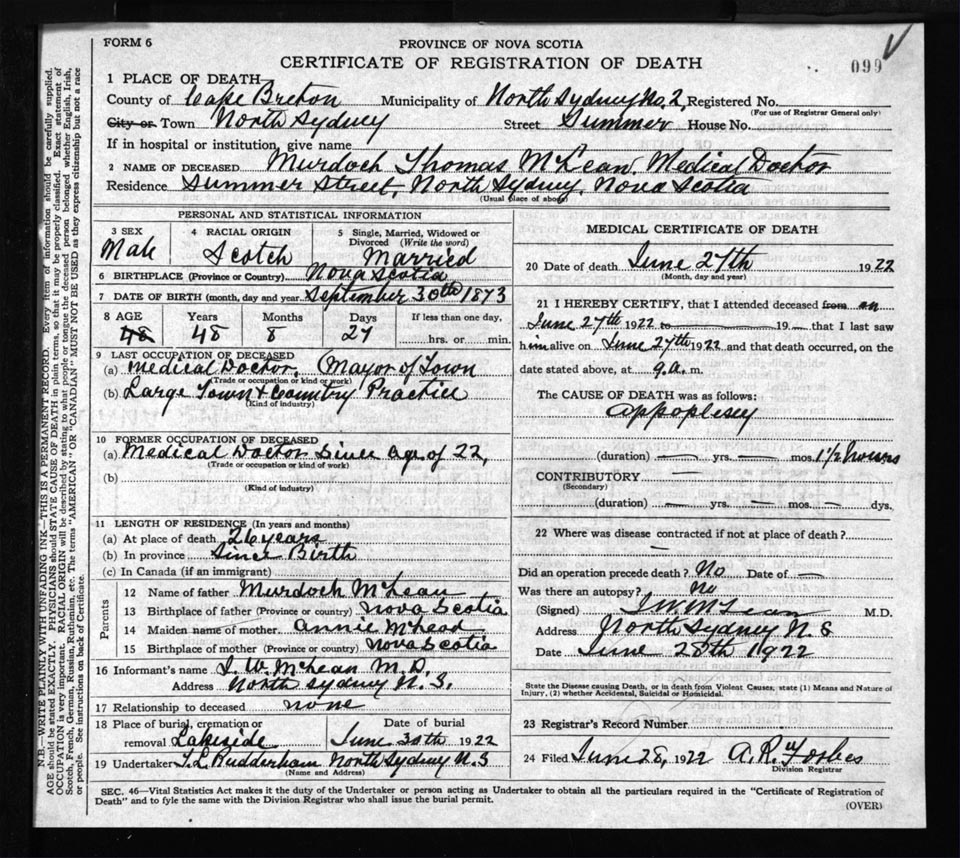 FORM 6
PROVINCE OF NOVA SCOTIA
CERTIFICATE OF REGISTRATION OF DEATH
099
1 PLACE OF DEATH
County of Cape Breton Municipality of North Sydney No. 2, Registered No.
(For use of Registrar General only)
City or Town North Sydney Street Summer House No.
If in hospital or institution, give name
2 NAME OF DECEASED Murdoch Thomas McLean. Medical Doctor
Residence Summer Street, North Sydney, Nova Scotia
(Usual place of abode)
PERSONAL AND STATISTICAL INFORMATION
3 SEX Male
4 RACIAL ORIGIN Scotch
5 Single, Married, Widowed or Divorced (Write the word) Married
6 BIRTHPLACE (Province or Country) Nova Scotia
7 DATE OF BIRTH (month, day and year) September 30th 1873
8 AGE Years Months Days If less than one day,
48 48 8 27 hrs. or min.
9 LAST OCCUPATION OF DECEASED
(a) Medical Doctor. Mayor of Town
(Trade or occupation or kind of work)
(b) Large Town & Country Practice
(Kind of industry)
10 FORMER OCCUPATION OF DECEASED
(a) Medical Doctor Since age of 22,
(Trade or occupation or kind of work)
(b)
(Kind of industry)
11 LENGTH OF RESIDENCE (In years and months)
(a) At place of death 26 years
(b) In province Since Birth
(c) In Canada (if an immigrant)
Parents
12 Name of father Murdoch McLean
13 Birthplace of father (Province or country) Nova Scotia
14 Maiden name of mother. Annie McLeod
15 Birthplace of mother (Province or country) Nova Scotia
16 Informant's name J. W. McLean M.D.
Address North Sydney N.S.
17 Relationship to deceased none
18 Place of burial, cremation or removal Lakeside
Date of burial June 30th 1922
19 Undertaker North Sydney N.S
(Name and Address)
MEDICAL CERTIFICATE OF DEATH
20 Date of death June 27th 1922
(Month, day and year)
21 I HEREBY CERTIFY, that I attended deceased from on
June 27th 1922 to 19 that I last saw
him alive on June 27th 1922 and that death occurred, on the
date stated above, at 9 a. m.
The CAUSE OF DEATH was as follows:
Appoplesey
(duration) — yrs. — mos. 1 1/2 hours
CONTRIBUTORY —
(Secondary)
(duration) — yrs. — mos. — dys.
22 Where was disease contracted if not at place of death?
—
Did an operation precede death? No Date of —
Was there an autopsy? No
(Signed) J W McLean M.D.
Address North Sydney N.S
Date June 28th 1922
State the Disease causing Death, or in death from Violent Causes, state (1) Means and Nature of Injury, (2) whether Accidental, Suicidal or Homicidal.
23 Registrar's Record Number
24 Filed June 28, 1922 A. R. Forbes
Division Registrar
SEC. 46—Vital Statistics Act makes it the duty of the Undertaker or person acting as Undertaker to obtain all the particulars required in the "Certificate of Registration of
Death" and to fyle the same with the Division Registrar who shall issue the burial permit.
(OVER)
N.B.—WRITE PLAINLY WITH UNFADING INK—THIS IS A PERMANENT RECORD. Every item of information should be carefully supplied.
AGE should be stated EXACTLY. PHYSICIANS should STATE CAUSE OF DEATH in plain terms, so that it may be properly classified. Exact statement of
OCCUPATION is very important. RACIAL ORIGIN will be described by stating to what people or tongue the deceased person belonged whether English, Irish,
Scotch, French, German, Russian, Ruthenian, etc. The terms "AMERICAN" OR "CANADIAN" MUST NOT BE USED as they express citizenship but not a race
or people. See instructions on back of Certificate.